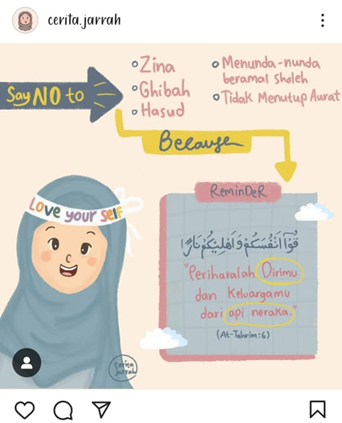 cerita.jarrah
Say NO to
Zina
Ghibah
Hasud
Menunda-nunda
beramal sholeh
Tidak Menutup Aurat
Because
ReminDeR
قُوْٓا اَنْفُسَكُمْ وَاَهْلِيْكُمْ نَارًا
"Periharalah Dirimu
dan Keluargamu
dari api neraka."
(At-Tahrim:6)
Love your self
cerita
jarrah